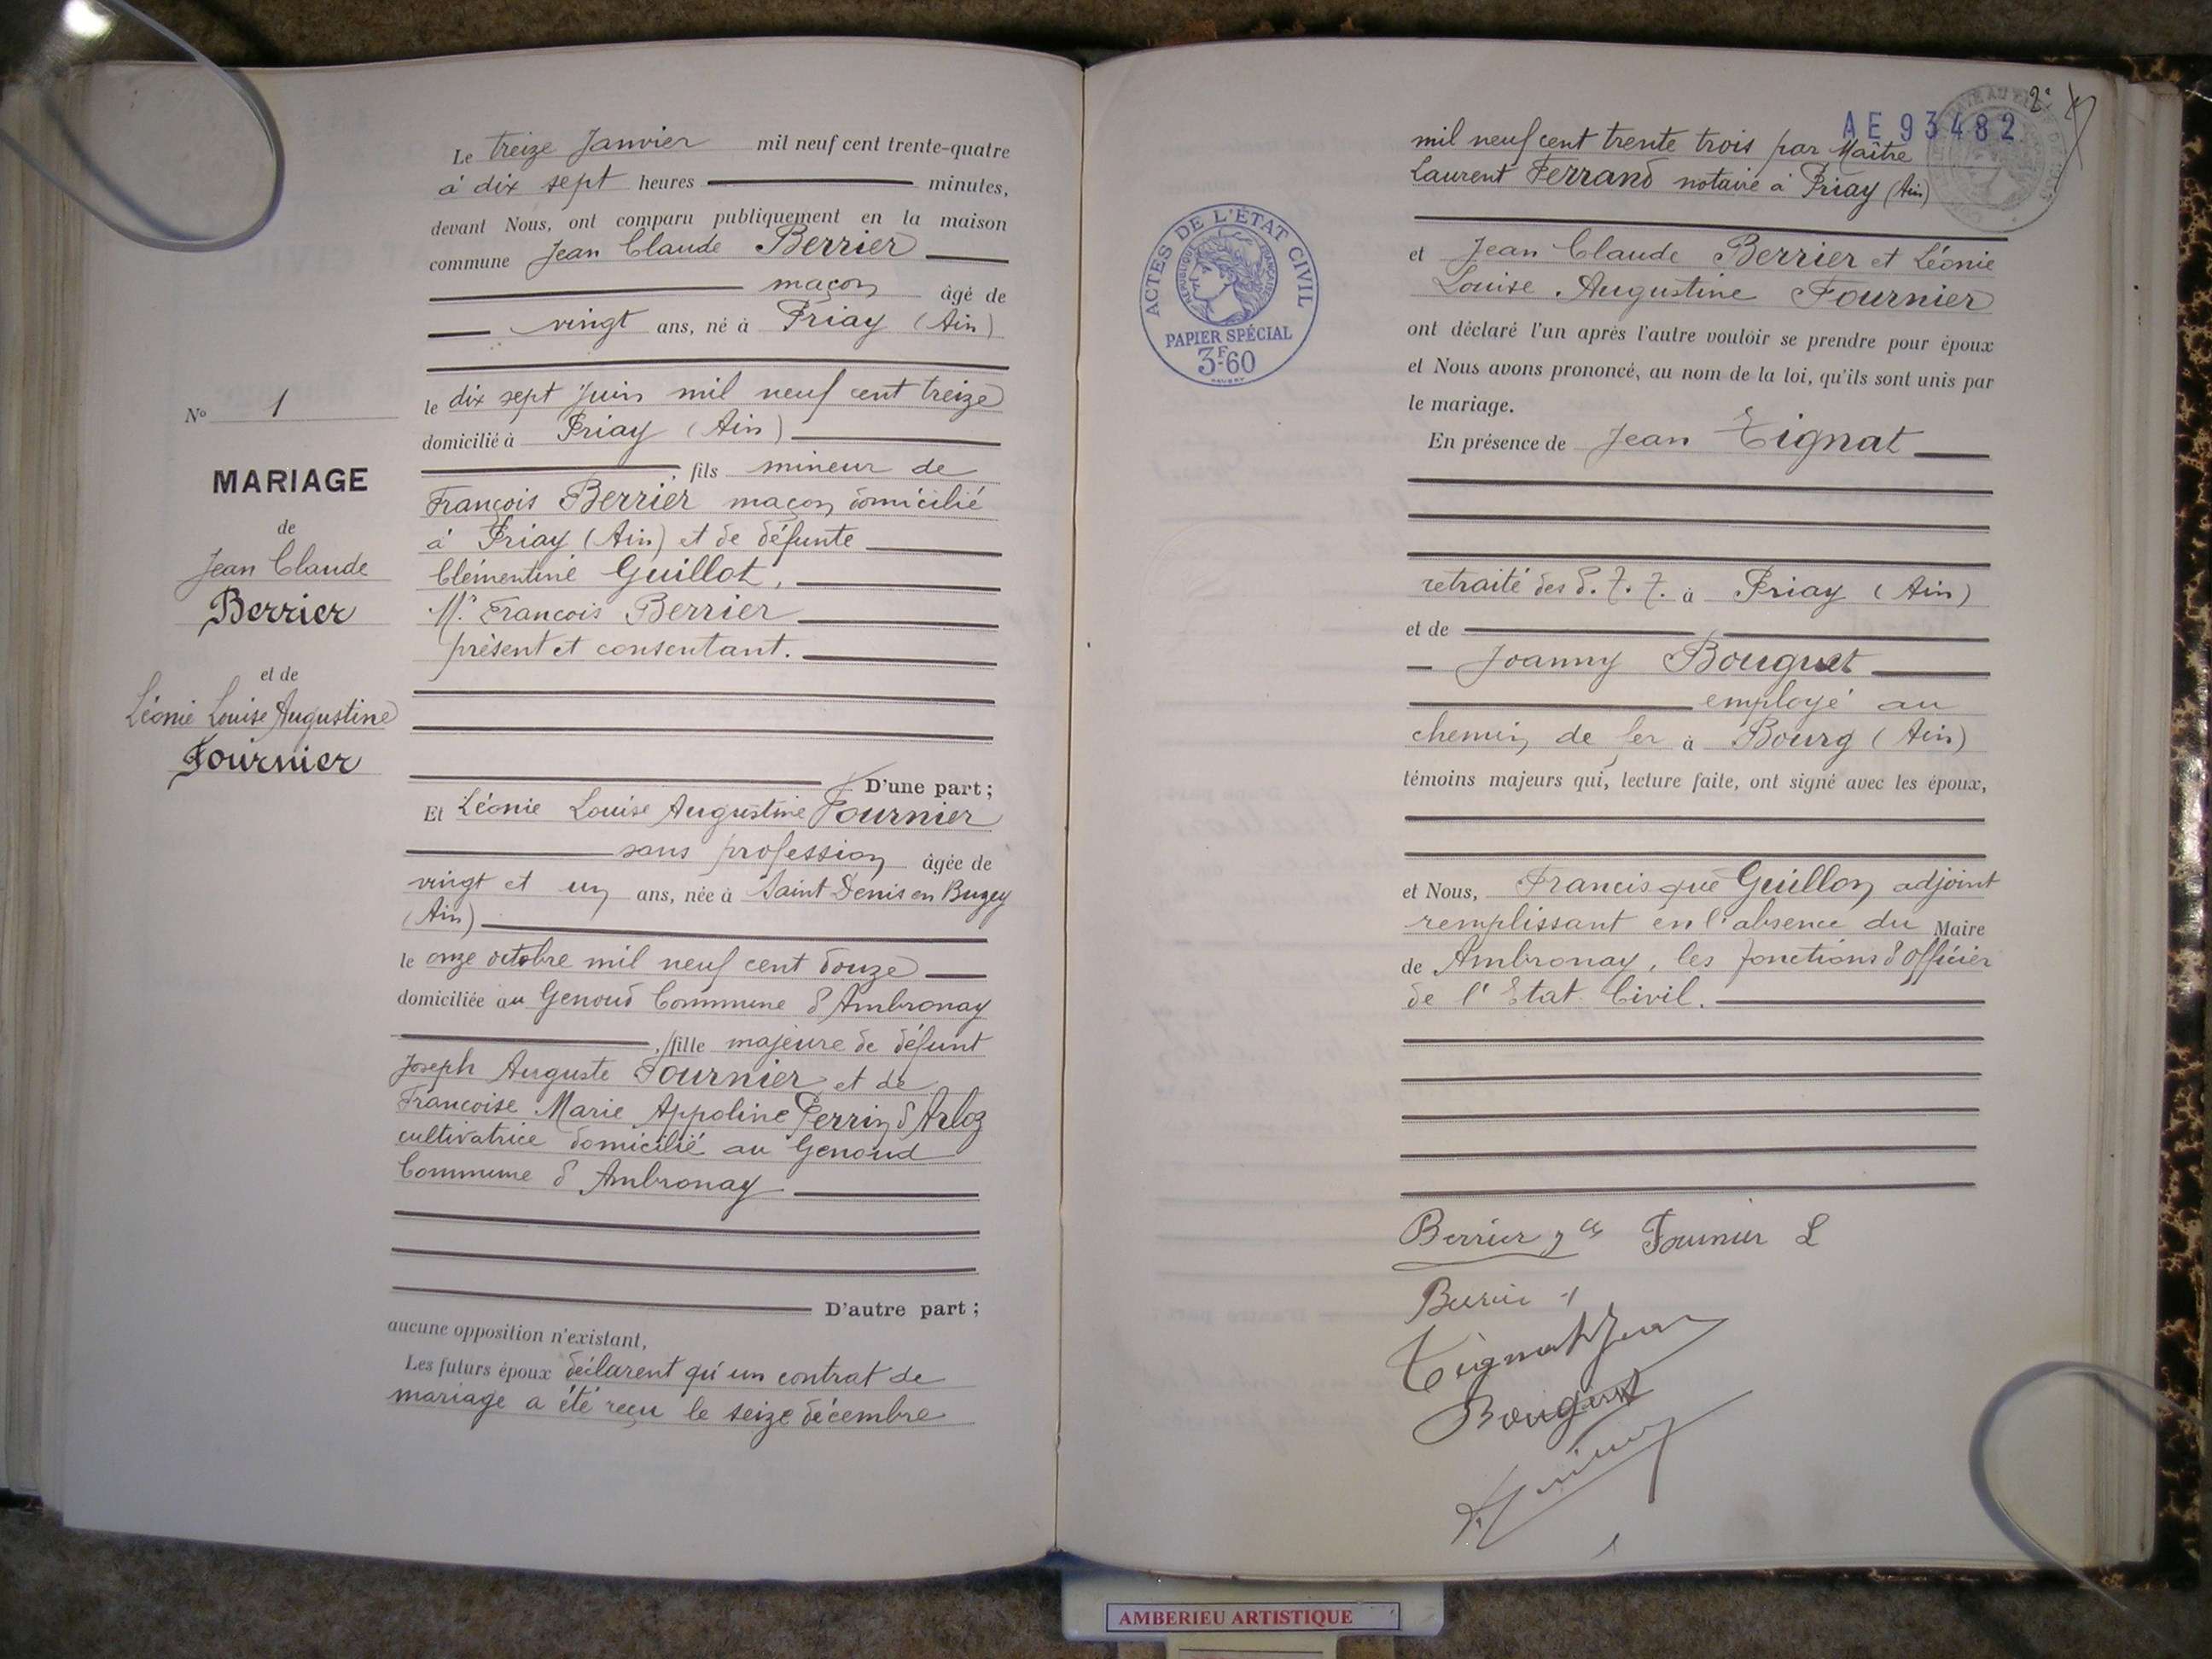 Le treize Janvier mil neuf cent trente-quatre
à dix sept heures minutes,
devant Nous, ont comparu publiquement en la maison
commune Jean Claude Berrier
maçon âgé de
vingt ans, né à Priay (Ain)
le dix sept Juin mil neuf cent treize
domicilié à Priay (Ain)
, fils mineur de
François Berrier maçon domicilié
à Priay (Ain) et de défunte
Clémentine Guillot,
Mr. François Berrier
présent et consentant.
D'une part ;
Et Léonie Louise Augustine Fournier
sans profession âgée de
vingt et un ans, née à Saint Denis en Bugey
(Ain)
le onze octobre mil neuf cent douze
domiciliée au Genoud Commune d'Ambronay
, fille majeure de défunt
Joseph Auguste Fournier et de
Francoise Marie Appoline Perrin d'Arloz
cultivatrice domicilié au Genoud
Commune d'Ambronay
D'autre part ;
aucune opposition n'existant,
Les futurs époux déclarent qu'un contrat de
mariage a été reçu le seize décembre
No 1
MARIAGE
de
Jean Claude
Berrier
et de
Léonie Louise Augustine
Fournier
2
AE 93482
mil neuf cent trente trois par Maître
Laurent Ferrand notaire à Priay (Ain)
ACTES DE L'ÉTAT CIVIL
RÉPUBLIQUE FRANÇAISE
PAPIER SPÉCIAL
3F60
et Jean Claude Berrier et Léonie
Louise Augustine Fournier
ont déclaré l'un après l'autre vouloir se prendre pour époux
et Nous avons prononcé, au nom de la loi, qu'ils sont unis par
le mariage.
En présence de Jean Tignat
retraité des P.T.T. à Priay (Ain)
et de
Joanny Bouguet
employé au
chemin de fer à Bourg (Ain)
témoins majeurs qui, lecture faite, ont signé avec les époux,
et Nous, Francisque Guillon adjoint
remplissant en l'absence du Maire
de Ambronay, les fonctions d'Officier
de l'Etat Civil.
Berrier J Cl Fournier L
Berrier f
Tignat Jean
Bouguet
AMBERIEU ARTISTIQUE